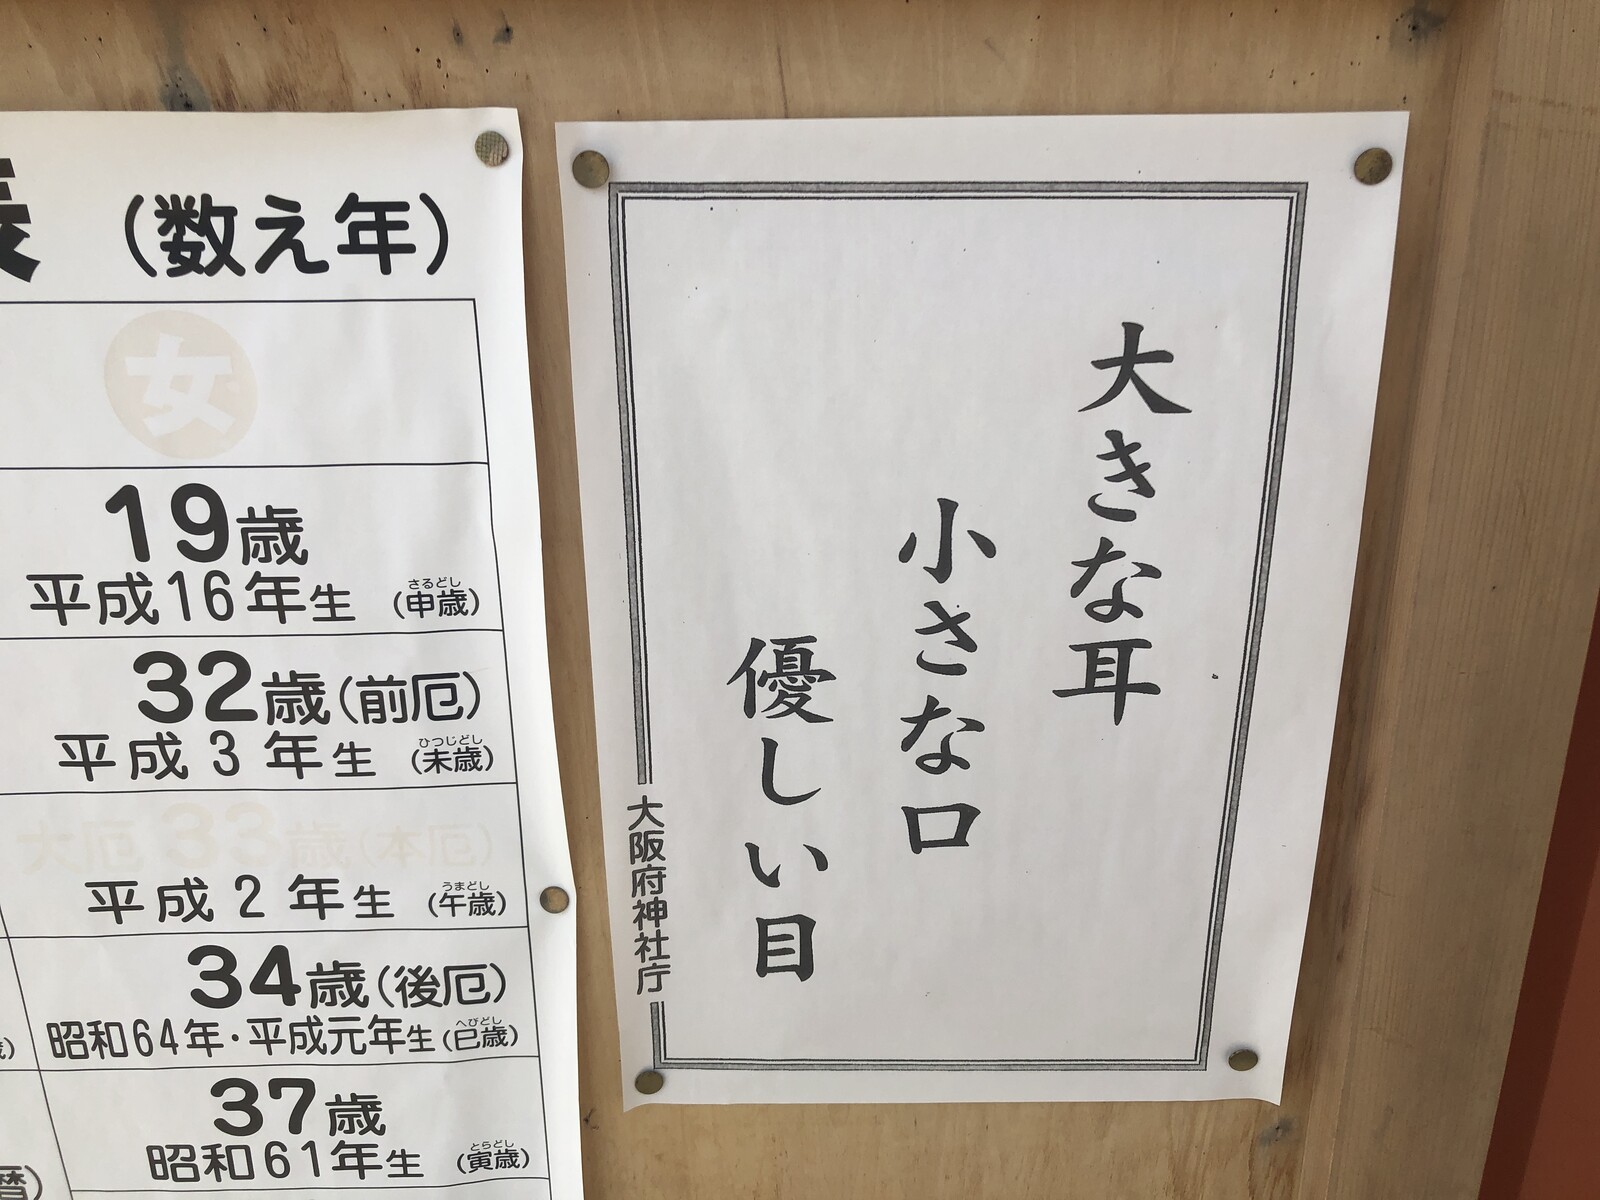 （数え年）
女
19歳
平成16年生（申歳）
さるどし
32歳（前厄）
平成3年生（未歳）
ひつじどし
大厄33歳（本厄）
平成2年生（午歳）
うまどし
34歳（後厄）
昭和64年・平成元年生（巳歳）
へびどし
37歳
昭和61年生（寅歳）
とらどし
大きな耳
小さな口
優しい目
大阪府神社庁